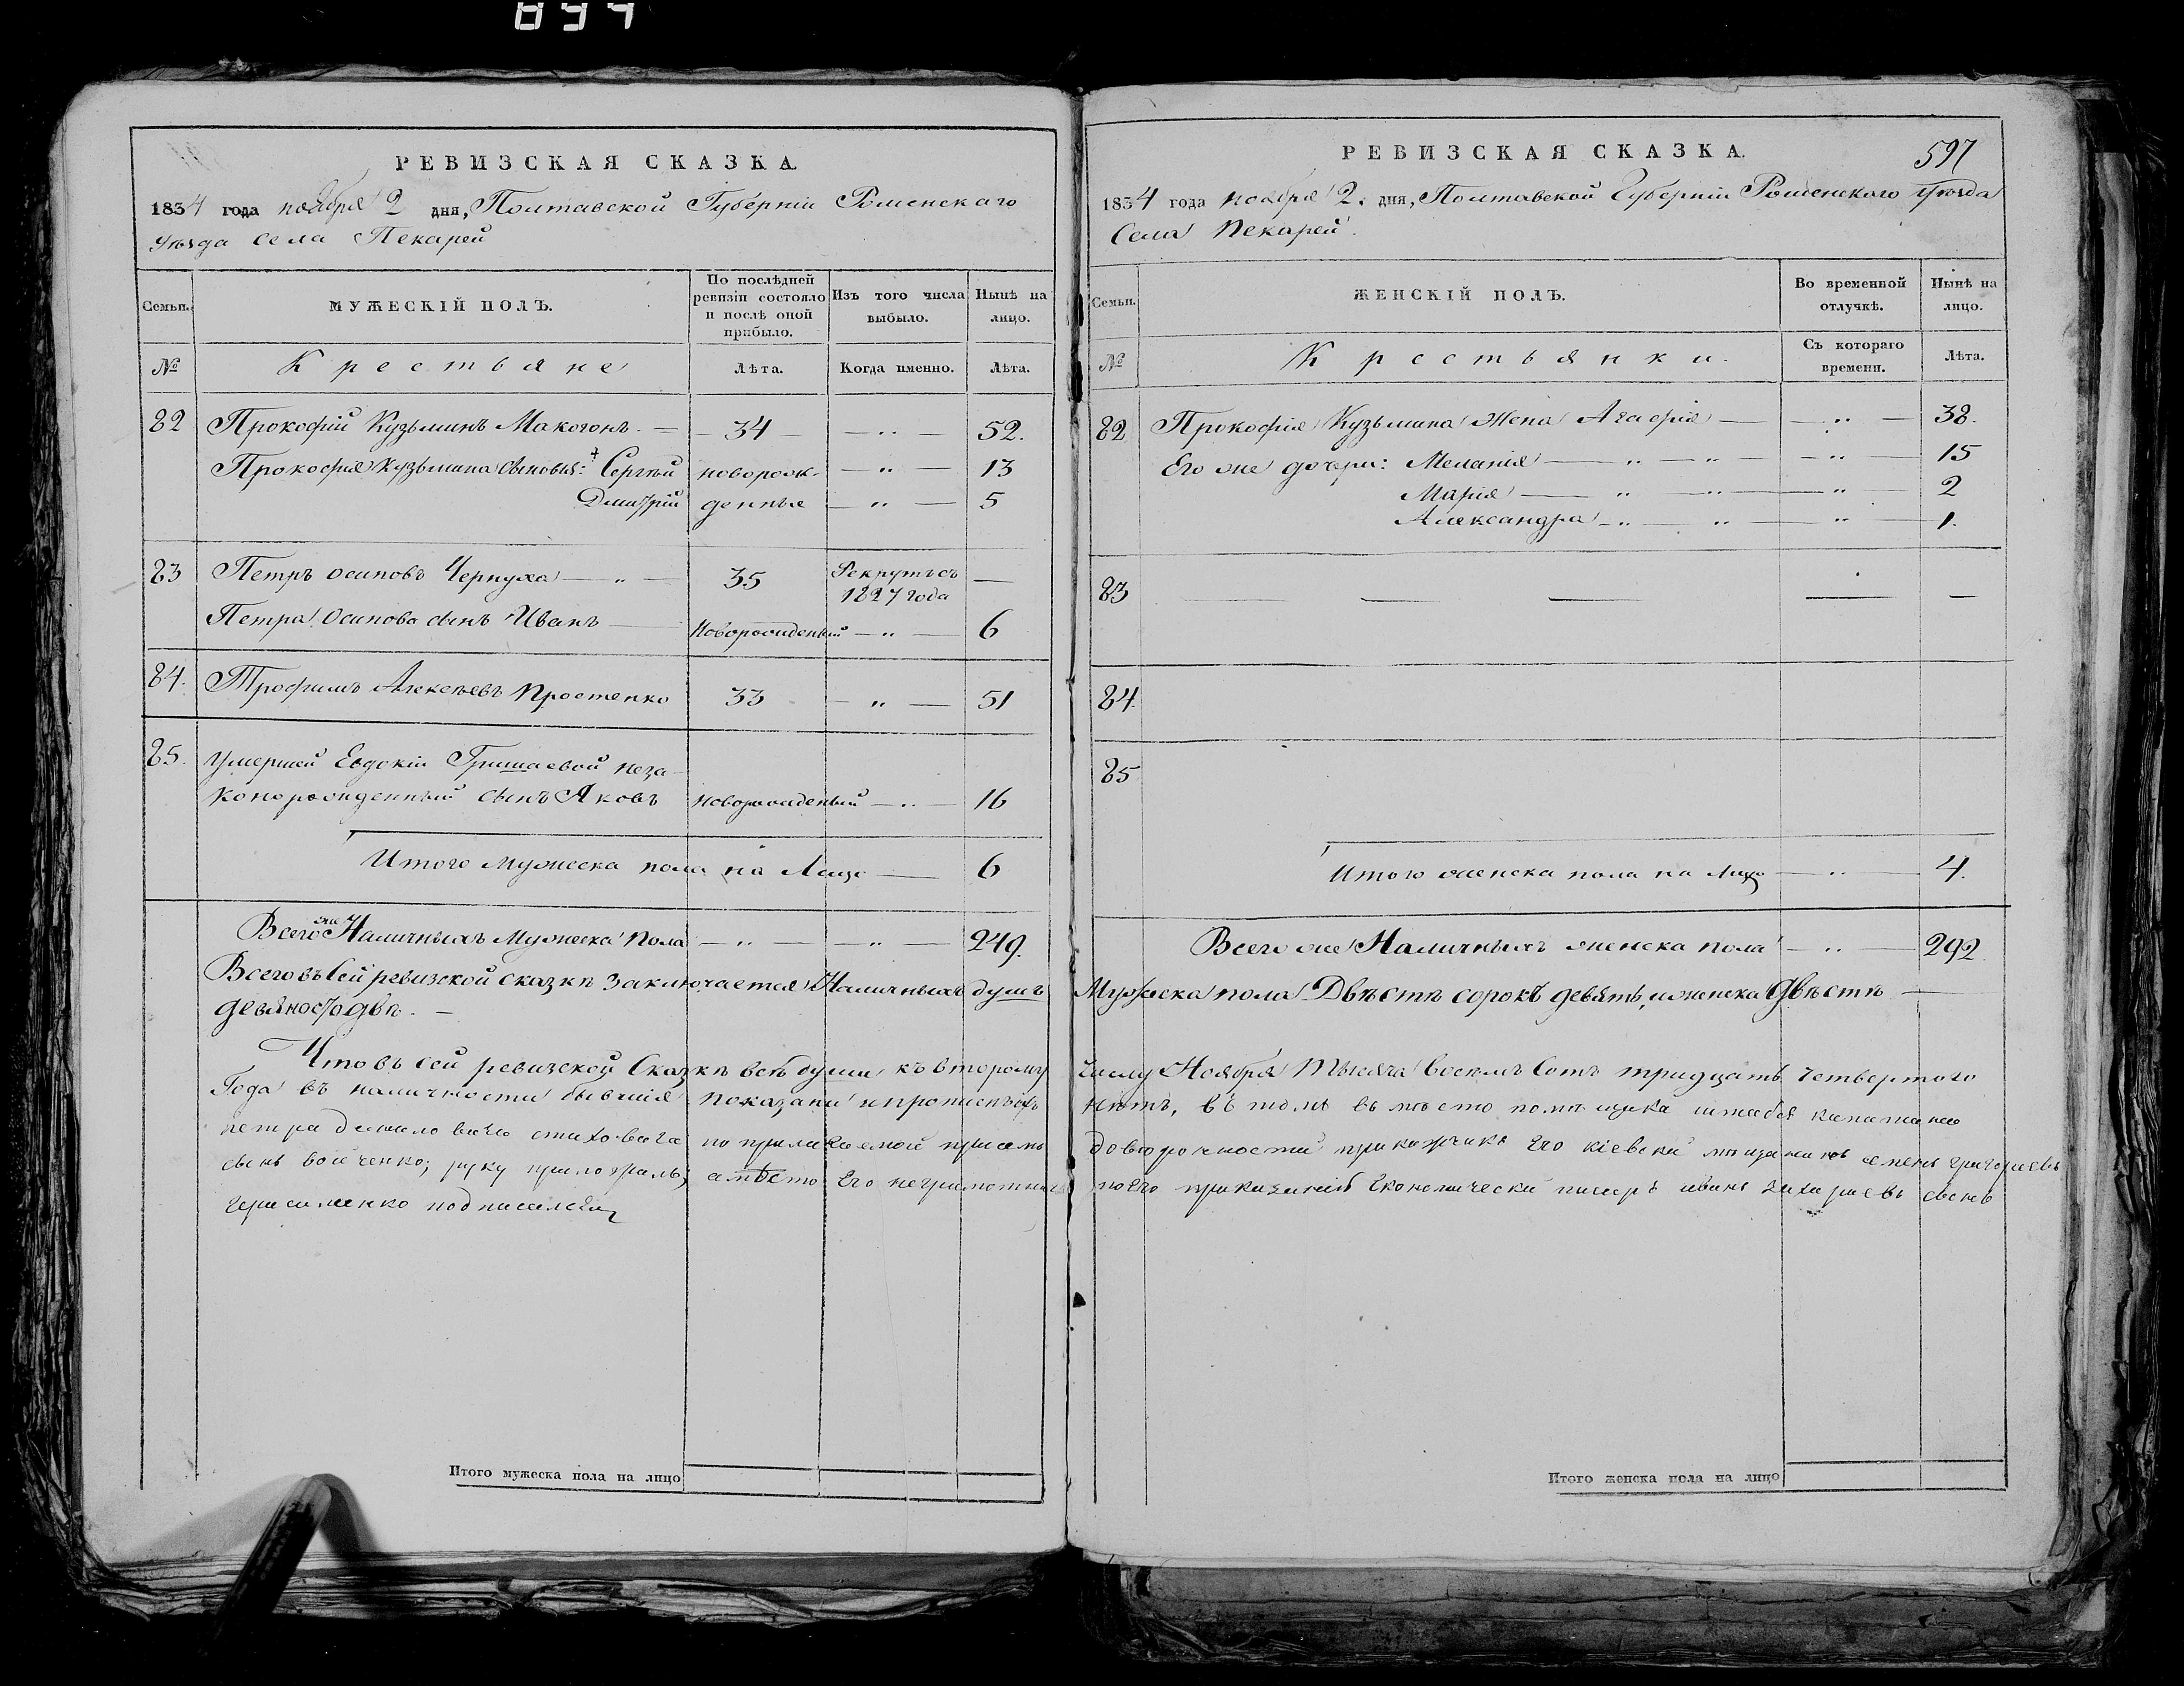 894
РЕВИЗСКАЯ СКАЗКА
1834 года ноября 2 дня, Полтавской Губерніи Роменского
уѣзда села Пекарей
Семьи.
МУЖЕСКІЙ ПОЛЪ.
По послѣдней ревизіи состояло и послѣ оной прибыло.
Изъ того числа выбыло.
Нынѣ на лицо.
№
Крестьяне
Лѣта.
Когда именно.
Лѣта.
82 Прокофій Кузьминъ Макогонъ. — 34 — — „ — 52.
Прокофія Кузьмина сыновья: Сергѣй новорож- — „ — 13
Дмитрій денные — „ — 5
83 Петръ Осиповъ Чернуха — „ — 35 Рекрутъ съ 1827 года —
Петра Осипова сынъ Иванъ — Новорожденный — „ — 6
84. Трофимъ Алексѣевъ Простенко 33 — „ — 51
85. Умершей Евдокіи Гришаевой неза-
конорожденный сынъ Яковъ новорожденный — „ — 16
Итого мужеска пола на лицо — 6
Всего же Наличныхъ Мужеска Пола — „ — „ — 249.
Всего въ сей ревизской сказкѣ заключается Наличныхъ душъ
девяносто двѣ. —
Что въ сей ревизской Сказкѣ всѣ души къ второму
Года въ наличности бывшія показаны и прописныхъ
петра по прилагаемой при семъ
сынъ руку приложилъ, а вмѣсто Его неграмотнаго
Герасименко подписался
Итого мужеска пола на лицо
РЕВИЗСКАЯ СКАЗКА.
597
1834 года ноября 2. дня, Полтавской Губерніи Роменского уѣзда
Села Пекарей.
Семьи.
ЖЕНСКІЙ ПОЛЪ.
Во временной отлучкѣ.
Нынѣ на лицо.
№
Крестьянки.
Съ котораго времени.
Лѣта.
82 Прокофія Кузьмина Жена Агафія — — „ — 38.
Его же дочери: Меланія — „ — „ — — „ — 15
Марія — „ — „ — „ — 2
Александра — „ — „ — „ — 1.
83 — — — — —
84.
85
Итого женска пола на лицо — „ — 4.
Всего же Наличныхъ женска пола — „ — 292.
Мужеска пола Двѣстѣ сорокъ девять, и женска Двѣстѣ —
числу Ноября Тысяча восемъ Сотъ тридцать четвертого
нѣтъ, въ томъ въмѣсто помѣщика штабсъ капитана
довѣронности прикажчикъ Его кіевскій мѣщанинъ семенъ григориевъ
по Его приказанію Економическій писарь иванъ захариевъ сынъ
Итого женска пола на лицо